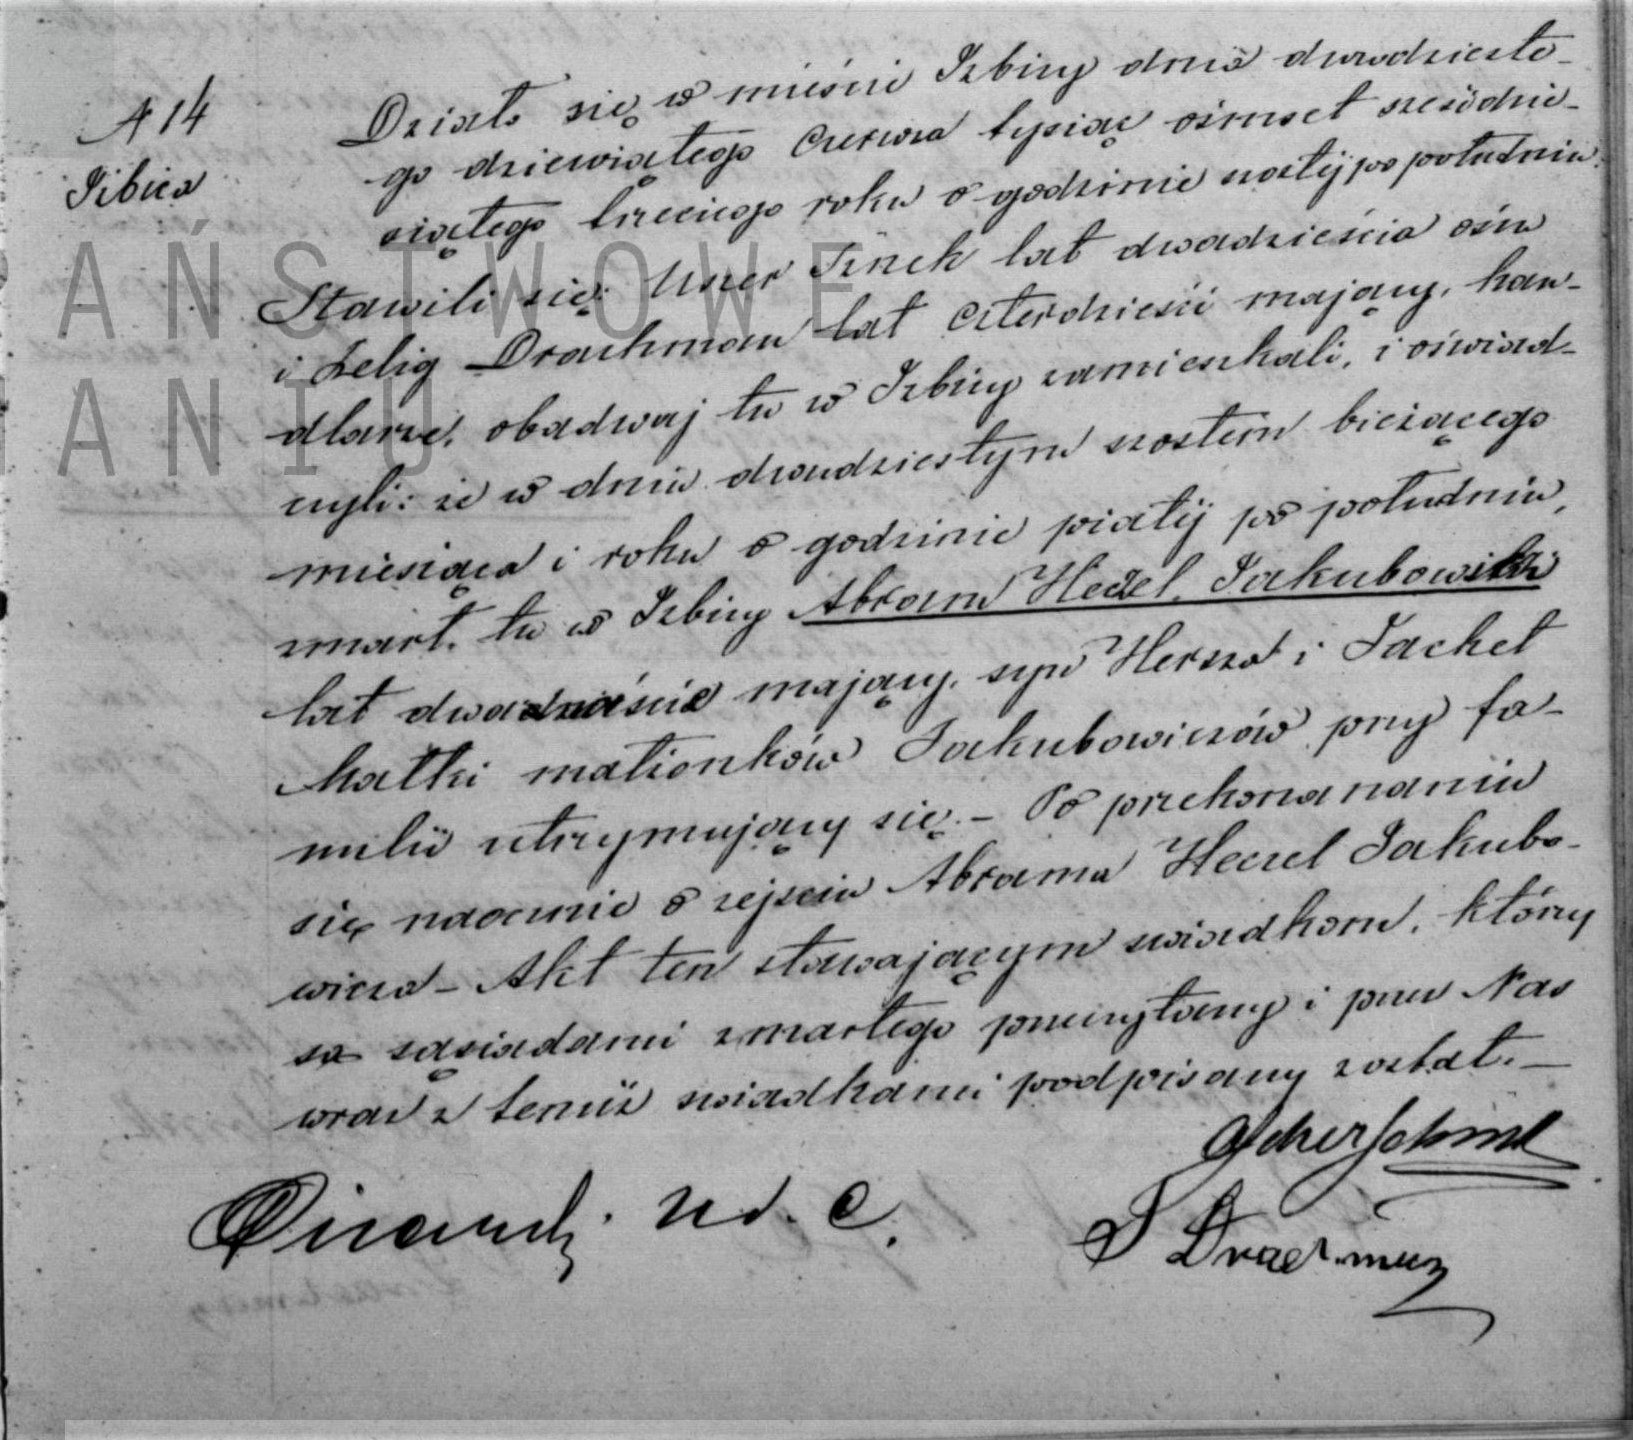 N 14
Izbica
Działo się w mieście Izbicy dnia dwudzieste-
go dziewiątego Czerwca tysiąc ośmset sześćdzie-
siątego trzeciego roku o godzinie szostej po południu.
Stawili się: Uszer Sznek lat dwadzieścia ośm
i Zelig Drachman lat czterdzieści mający, han-
dlarze, obadwaj tu w Izbicy zamieszkali, i oświad-
czyli: że w dniu dwudziestym szostem bieżącego
miesiąca i roku o godzinie piątej po południu,
zmarł tu w Izbicy Abram Heczel Jakubowicz
lat dwanaście mający, syn Hersza i Jachet
Matki małżonków Jakubowiczów przy fa-
milii utrzymujący się. – Po przekonananiu
się naocznie o zejściu Abrama Heczel Jakubo-
wicza – Akt ten stawającym świadkom, którzy
są sąsiadami zmarłego przeczytany i przez Nas
wraz z temiż świadkami podpisany został. –
S Drachman
AŃSTWOWE
ANIU